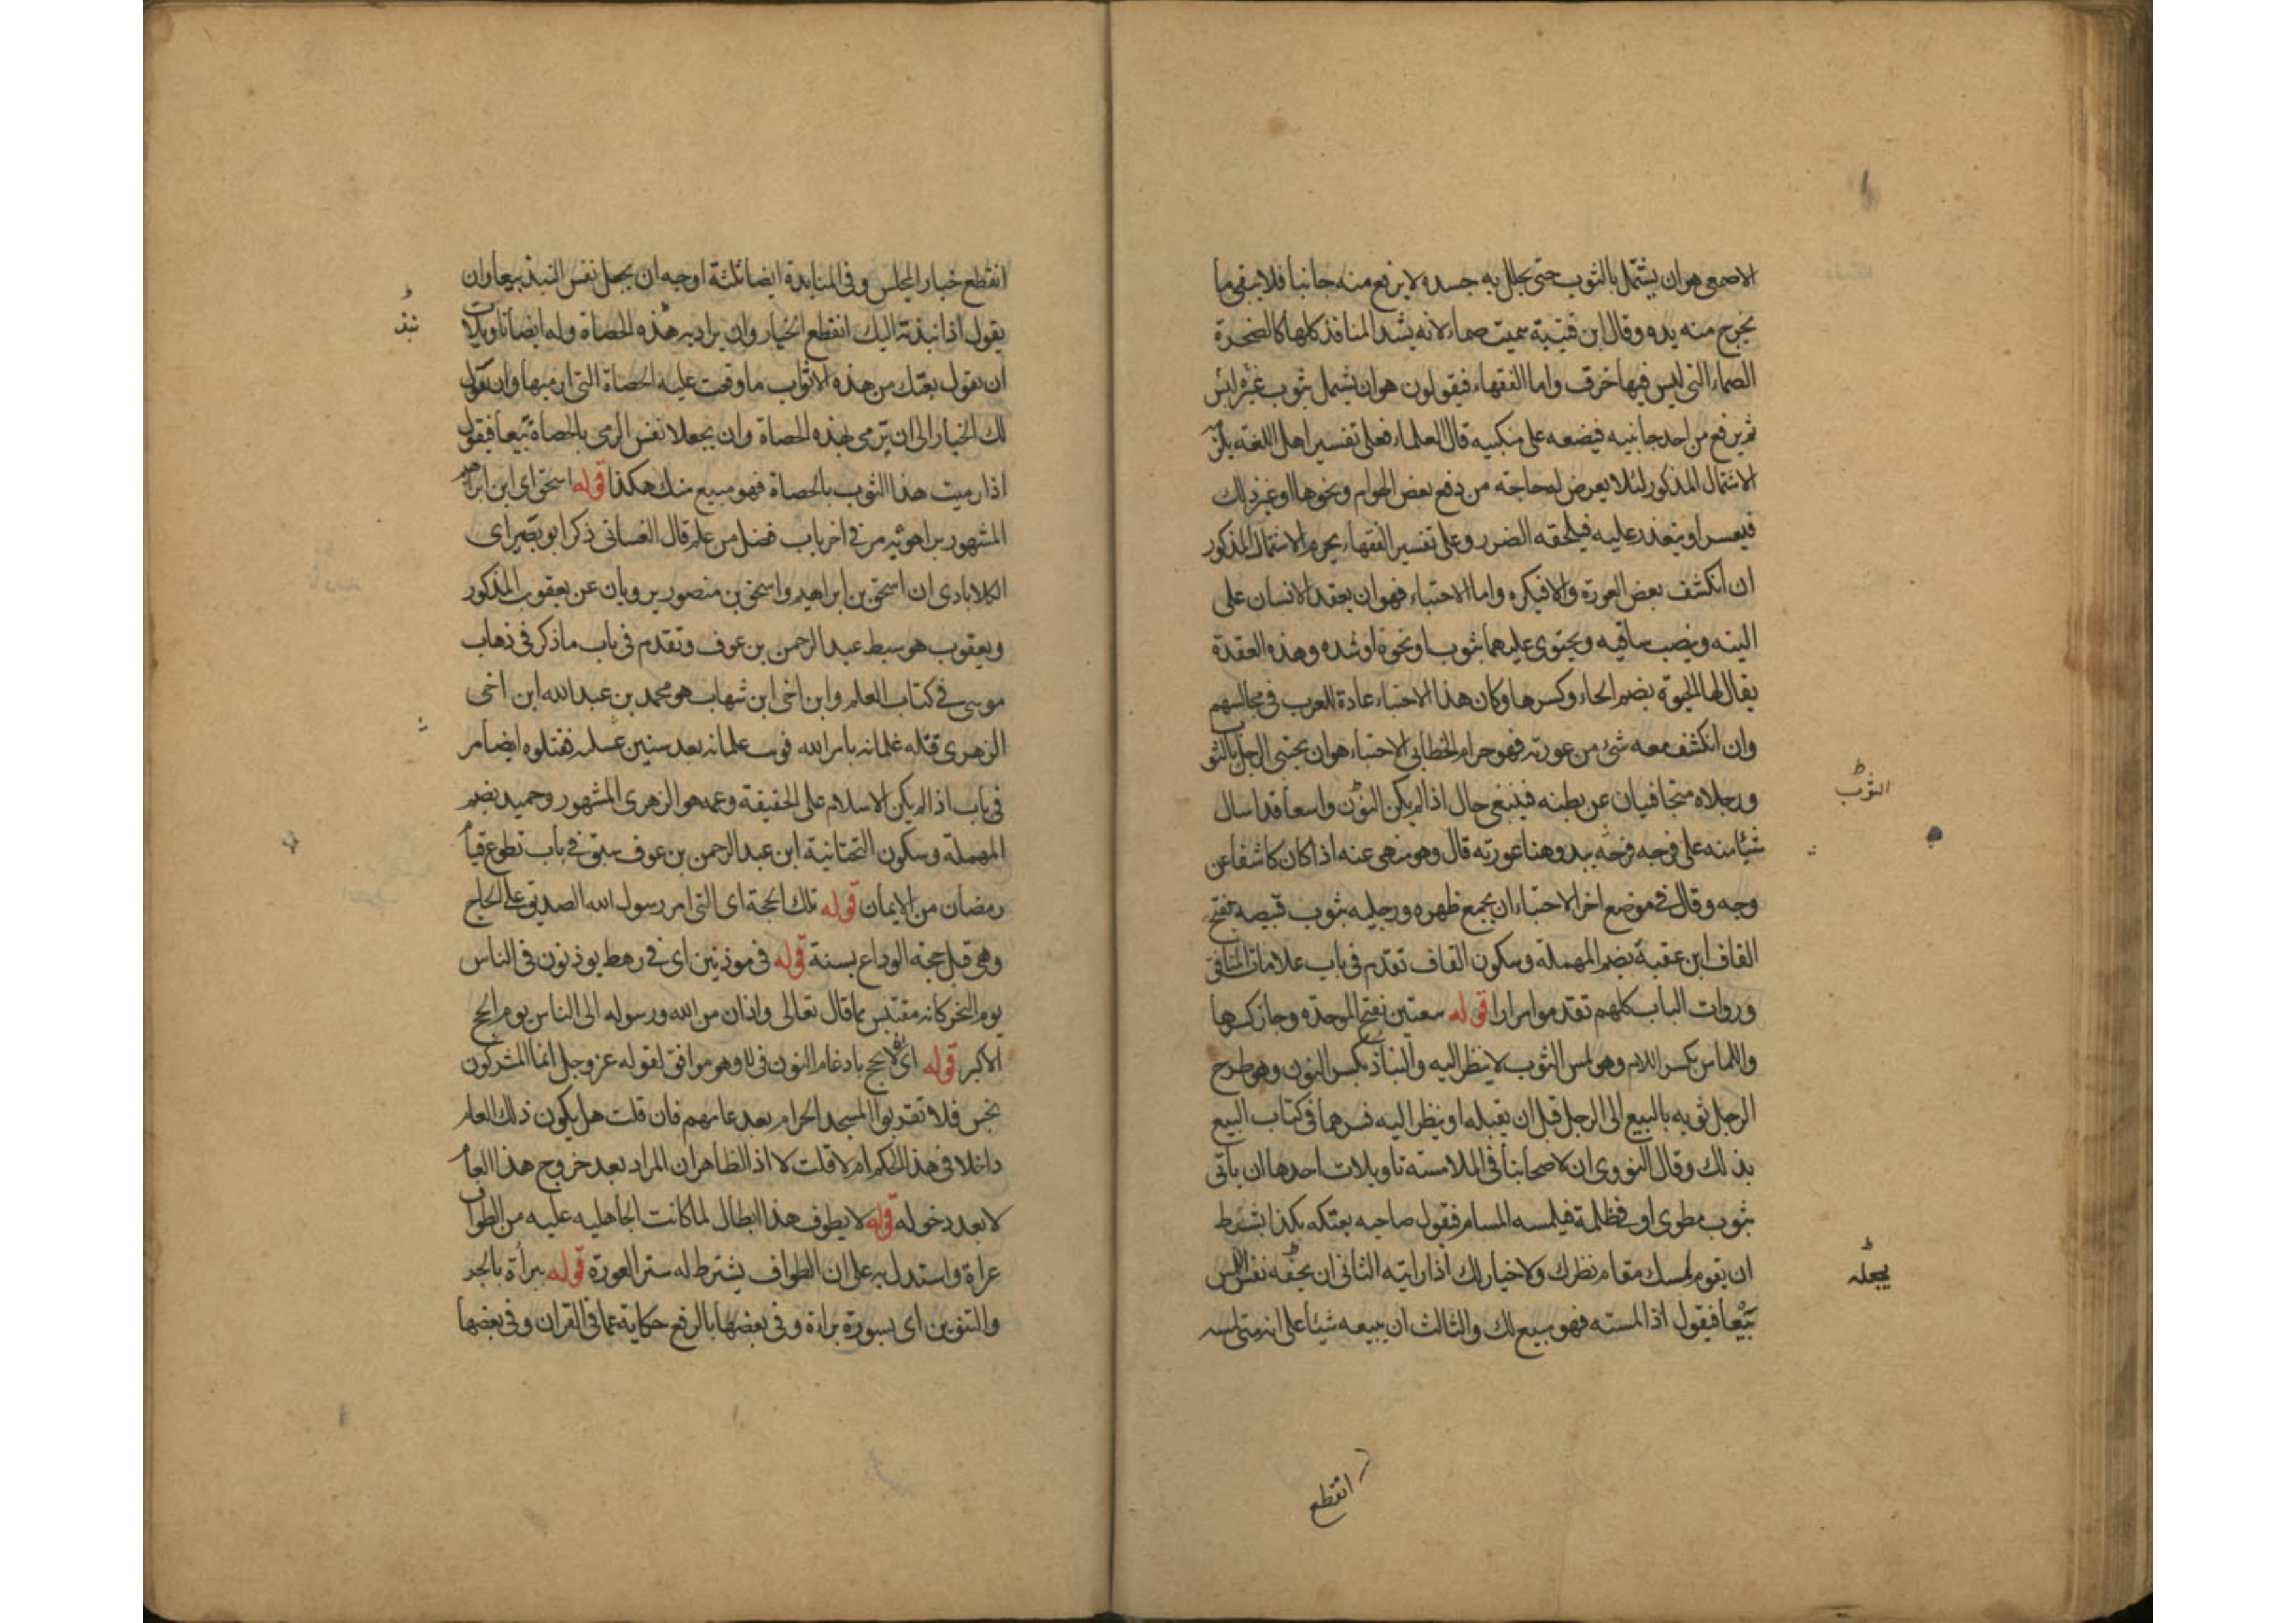 الاصمعى هو ان يشتمل بالثوب حتى يجلل به جسده لا يرفع منه جانبا فلا يبقى ما
يخرج منه يده وقال ابن قتيبة سميت صماء لانه يشد المنافذ كلها كالصخرة
الصماء التى ليس فيها خرق واما الفقهاء فيقولون هو ان يشتمل بثوب غيره ليس
ثم يرفع من احد جانبيه فيضعه على منكبيه قال العلماء فعلى تفسير اهل اللغة يكره
الاشتمال المذكور لئلا يعرض له حاجة من دفع بعض الهوام ونحوها او غير ذلك
فيعسر او يتعذر عليه فيلحقه الضرر وعلى تفسير الفقهاء يحرم الاشتمال المذكور
ان انكشف بعض العورة والا فيكره واما الاحتباء فهو ان يقعد الانسان على
اليته وينصب ساقيه ويحتوى عليهما بثوب او نحوه او شده وهذه العقدة
يقال لها الحبوة بضم الحاء وكسرها وكان هذا الاحتباء عادة للعرب فى مجالسهم
وان انكشف معه شئ من عورته فهو حرام الخطابى الاحتباء هو ان يحتبى الرجل بالثوب
ورجلاه متجافيان عن بطنه فينبغى حال اذا لم يكن الثوب واسعا قد اسال
شيئا منه على فرجه فرجة يبدو هنا عورته قال وهو منهى عنه اذا كان كاشفا عن
وجه وقال فى موضع اخر الاحتباء ان يجمع ظهره ورجليه بثوب قبيصه بفتح
القاف ابن عقبة بضم المهملة وسكون القاف تقدم فى باب علامات المنافق
وروات الباب كلهم تقدموا مرارا قوله بيعتين بفتح الموحدة وجاز كسرها
واللماس بكسر اللام وهو لمس الثوب لا ينظر اليه والنباذ بكسر النون وهو طرح
الرجل ثوبه بالبيع الى الرجل قبل ان يقبله او ينظر اليه فسرهما فى كتاب البيع
بذلك وقال النووى ان لاصحابنا فى الملامسة تاويلات احدها ان ياتى
بثوب مطوى او فى ظلمة فيلمسه المسام فيقول صاحبه بعتكه بكذا بشرط
ان يقوم لمسك مقام نظرك ولا خيار لك اذا رايته الثانى ان يجعله نفس اللمس
بيعا فيقول اذا لمسته فهو مبيع لك والثالث ان يبيعه شيئا على انه متى لمسه
الثوب
يجعله
انقطع
انقطع خيار المجلس وفى المنابذة ايضا ثلثة اوجه ان يجعل نفس النبذ بيعا وان
يقول اذا نبذته اليك انقطع الخيار وان يراد به هذه الحصاة وله ايضا تاويلات
ان يقول بعتك من هذه الاثواب ما وقعت عليه الحصاة التى ارميها وان يقول
لك الخيار الى ان ترمى بهذه الحصاة وان يجعلا نفس الرمى بالحصاة بيعا فيقول
اذا رميت هذا الثوب بالحصاة فهو مبيع منك هكذا قوله اسحق اى ابن ابراهيم
المشهور بن راهويه مر فى اخر باب فضل من علم قال الغسانى ذكر ابو نصر اى
الكلاباذى ان اسحق بن ابراهيم واسحق بن منصور يرويان عن يعقوب المذكور
ويعقوب هو سبط عبد الرحمن بن عوف وتقدم فى باب ما ذكر فى ذهاب
موسى فى كتاب العلم وابن اخى ابن شهاب هو محمد بن عبد الله ابن اخى
الزهرى قتله غلمانه بامر الله فوب غلمانه بعد سنين فقتلوه ايضا مر
فى باب اذا لم يكن الاسلام على الحقيقة وعمه هو الزهرى المشهور وحميد بضم
المهملة وسكون التحتانية ابن عبد الرحمن بن عوف سبق فى باب تطوع قيام
رمضان من الايمان قوله تلك الحجة اى التى امر رسول الله الصديق على الحاج
وهى قبل حجة الوداع بسنة قوله فى موذنين اى فى رهط يوذنون فى الناس
يوم النحر كانه مقتبس مما قال تعالى واذان من الله ورسوله الى الناس يوم الحج
الاكبر قوله اى لا يحج بادغام النون فى لا وهو موافق لقوله عز وجل انما المشركون
نجس فلا تقربوا المسجد الحرام بعد عامهم فان قلت هل يكون ذلك العام
داخلا فى هذا الحكم ام لا قلت لا اذ الظاهر ان المراد بعد خروج هذا العام
لا بعد دخوله قوله لا يطوف هذا ابطال لما كانت الجاهليه عليه من الطواف
عراة واستدل به على ان الطواف يشترط له ستر العورة قوله ببراة بالجر
والتنوين اى بسورة براءة وفى بعضها بالرفع حكاية عما فى القران وفى بعضها
نبذ